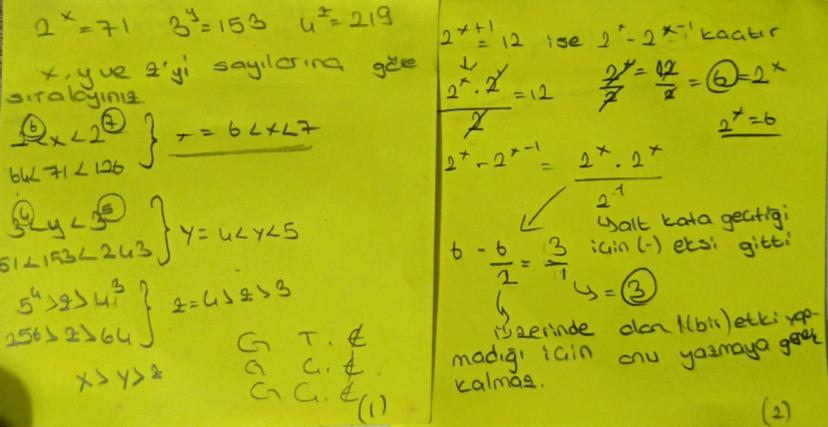 2^x = 71   3^y = 153   4^z = 219
x, y ve z'yi sayılarına göre
sıralayınız.
2^6 < x < 2^7 } x = 6 < x < 7
64 < 71 < 126
3^4 < y < 3^5 } y = 4 < y < 5
81 < 153 < 243
5^4 > z > 4^3 } z = 4 > z > 3
256 > z > 64
x > y > z
G T. ₡
G G. ₡.
G G. ₡
(1)
2^x+1 = 12 ise 2^x - 2^x-1 kaçtır
2^x . 2 / 2 = 12   2^x / 2 = 12 / 2 = 6 = 2^x
2^x = 6
2^x - 2^x-1 = 2^x . 2^x / 2^-1
↳ alt kata geçtiği
için (-) eksi gitti
6 - 6/2 = 3/1 ↳ = 3
↳ üzerinde olan 1(bir) etki yap-
madığı için onu yazmaya gerek
kalmaz.
(2)